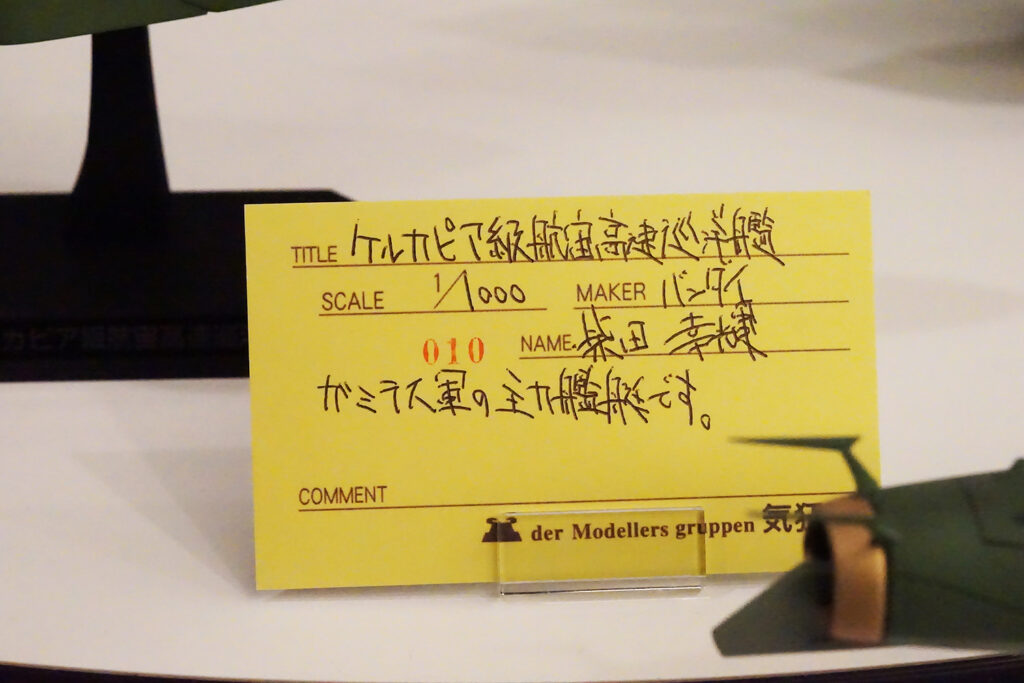 TITLE ケルカピア級航宙高速巡洋艦
SCALE 1/1000 MAKER バンダイ
010 NAME 柴田 幸輝
ガミラス軍の主力艦艇です。
COMMENT
der Modellers gruppen 気